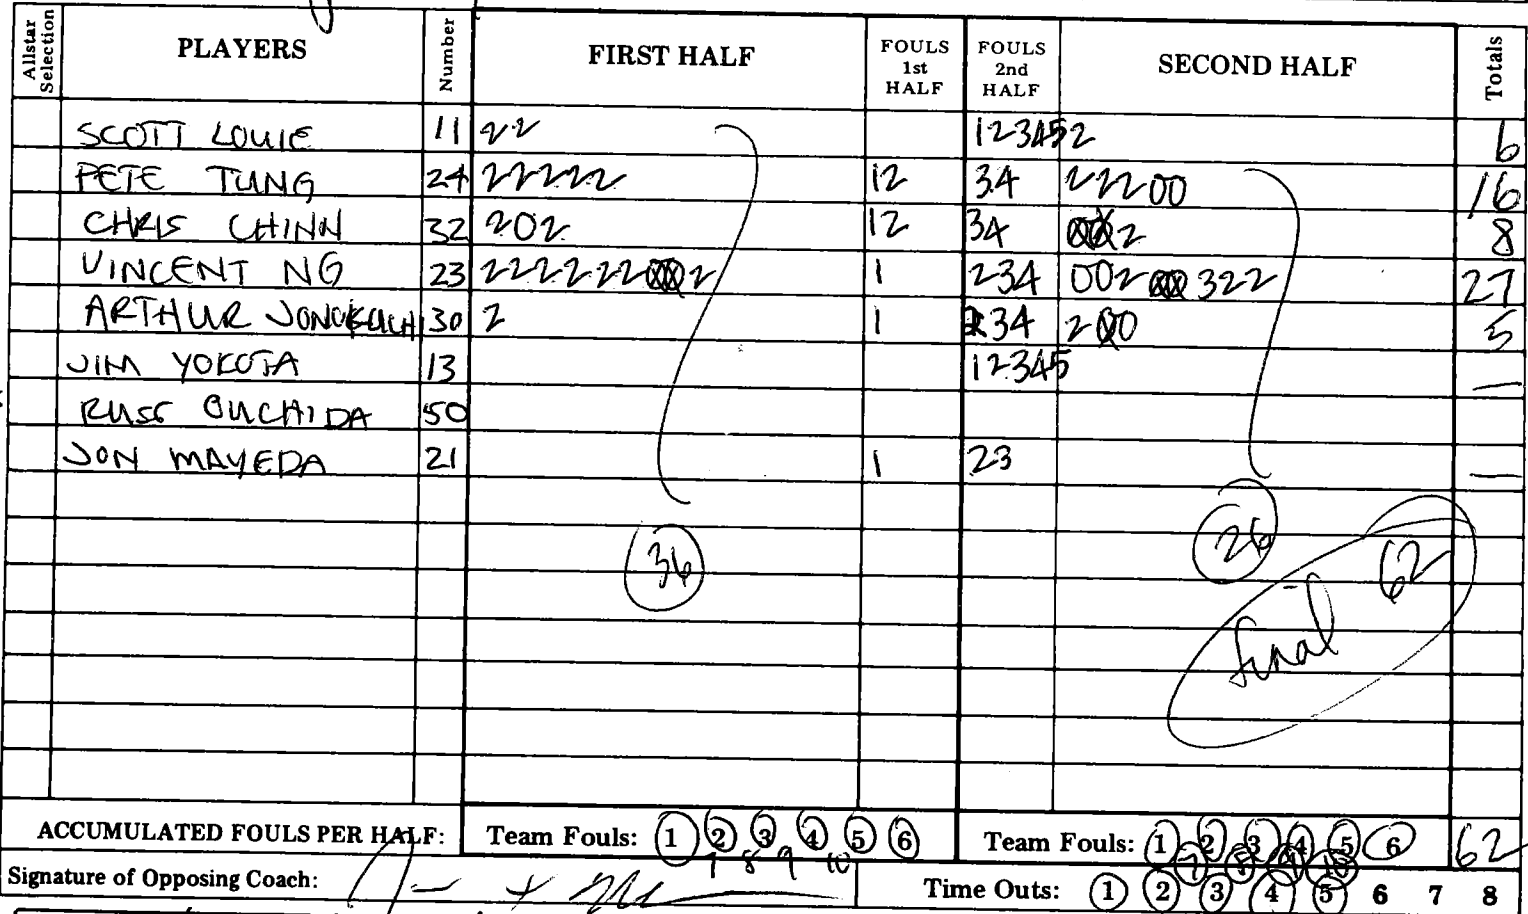 Allstar Selection PLAYERS Number FIRST HALF FOULS 1st HALF FOULS 2nd HALF SECOND HALF Totals
SCOTT LOUIE 11 22 12345 2 6
PETE TUNG 24 22222 12 34 22200 16
CHRIS CHINN 32 202 12 34 002 8
VINCENT NG 23 222222002 1 234 00200322 27
ARTHUR 30 2 1 234 200 5
JIM YOKOTA 13 12345 —
RUSS OUCHIDA 50
JON MAYEDA 21 1 23 —
36 26
final 62
ACCUMULATED FOULS PER HALF: Team Fouls: 1 2 3 4 5 6 Team Fouls: 1 2 3 4 5 6 62
7 8 9 10 7 8 9 10
Signature of Opposing Coach: Time Outs: 1 2 3 4 5 6 7 8